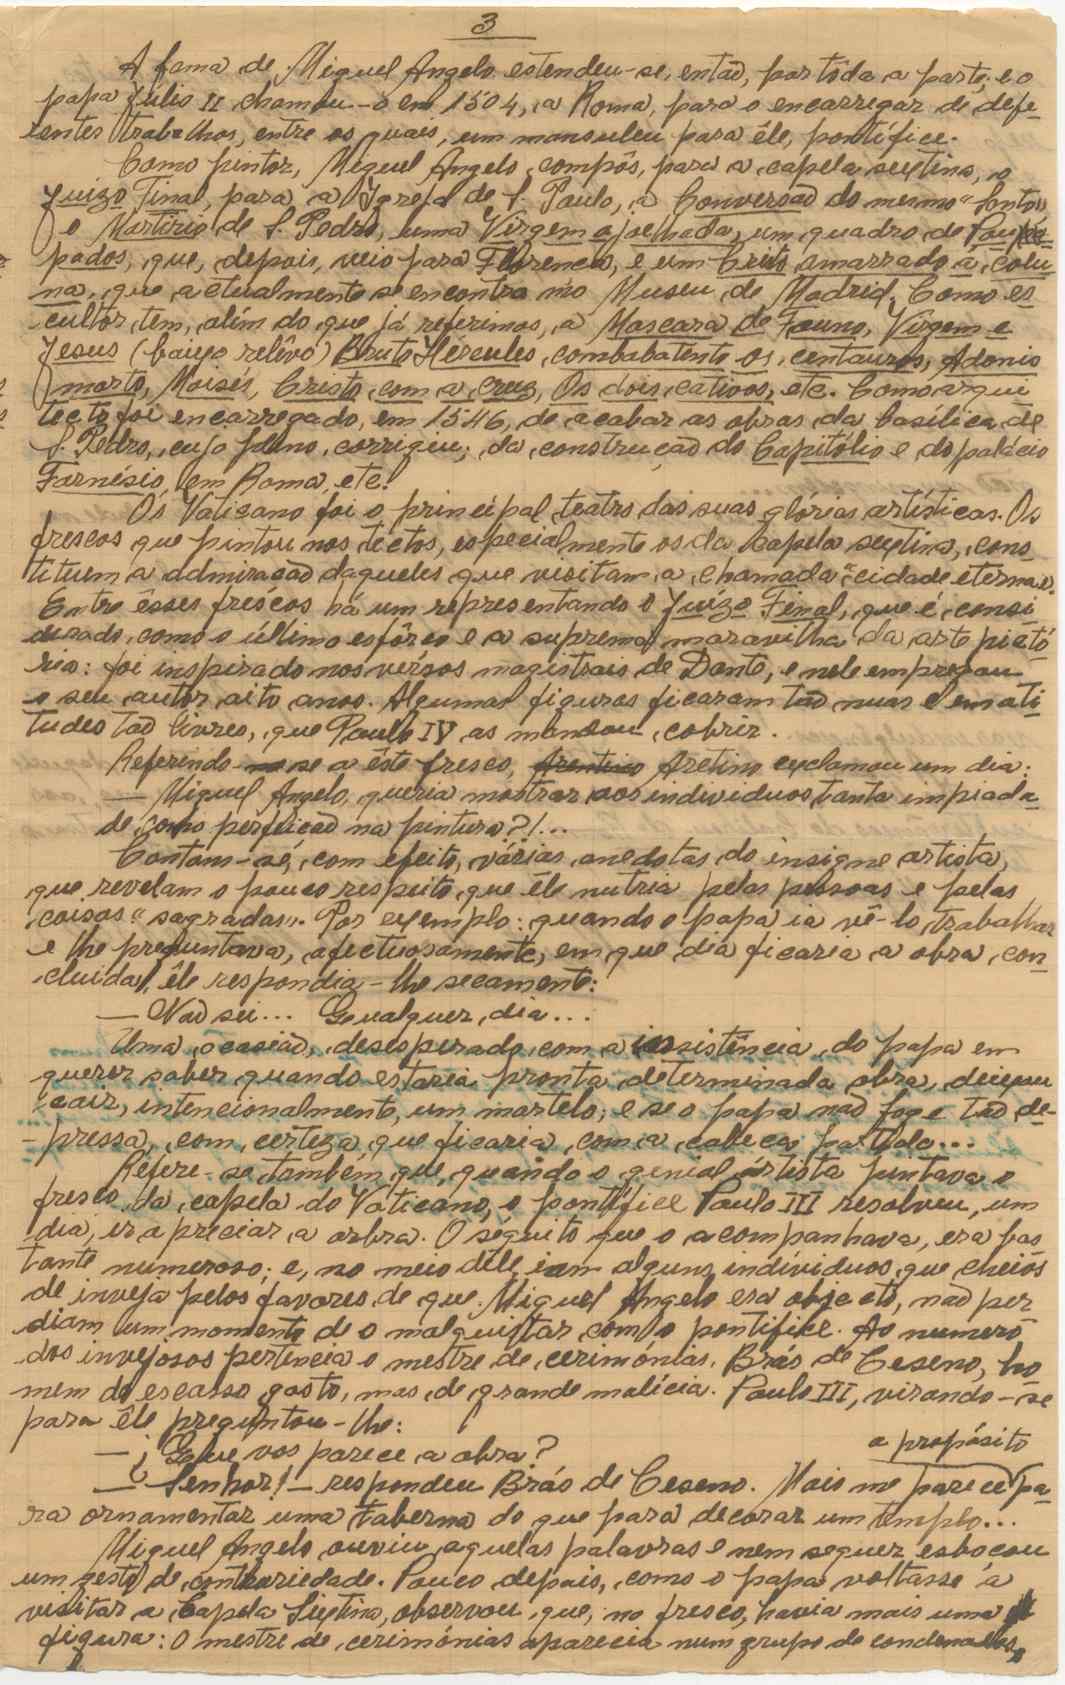 3
A fama de Miguel Angelo estendeu-se, então, por tôda a parte, e o
papa Júlio II chamou-o em 1504, a Roma, para o encarregar de dife-
rentes trabalhos, entre os quais, um mausuleu para êle, pontífice.
Como pintor, Miguel Angelo compôs, para a capela sextina, o
Juizo Final, para a Igreja de S. Paulo, a Conversão do mesmo "Santo",
o Martirio de S. Pedro, uma Virgem ajoelhada, um quadro de
pados, que, depois, veio para Florença, e um Cristo amarrado à colu-
na, que actualmente se encontra no Museu de Madrid. Como es-
cultor, tem, além do que já referimos, a Mascara de Fauno, Virgem e
Jesus (baixo relêvo) Bruto Hércules, combabatente os centauros, Adonis
morto, Moisés, Cristo com a cruz, Os dois cativos, etc. Como arqui
tecto foi encarregado, em 1546, de acabar as obras da basílica de
S. Pedro, cujo plano corrigiu; da construção do Capitólio e do palácio
Farnésio, em Roma, etc.
Os Vaticano foi o principal teatro das suas glórias artísticas. Os
frescos que pintou nos tectos, especialmente os da Capela sextina, cons
tituem a admiração daqueles que visitam a chamada "cidade eterna".
Entre êsses frescos há um representando o Juízo Final, que é consi-
derado como o último esfôrço e a suprema maravilha da arte pictó-
rica: foi inspirado nos versos magistrais de Dante, e nele empregou
o seu autor oito anos. Algumas figuras ficaram tão nuas e em ati-
tudes tão livres, que Paulo IV as mandou cobrir.
Referindo-se a êste fresco, Aretino exclamou um dia:
— Miguel Angelo, queria mostrar aos individuos tanta impieda-
de como perfeição na pintura?!...
Contam-se, com efeito, várias anedotas do insigne artista,
que revelam o pouco respeito que êle nutria pelas pessoas e pelas
coisas "sagradas". Por exemplo: quando o papa ia vê-lo trabalhar
e lhe preguntava, afectuosamente, em que dia ficaria a obra con-
cluida, êle respondia-lhe secamente:
— Não sei... Qualquer dia...
Uma ocasião, desesperado com a insistência do papa em
querer saber quando estaria pronta determinada obra, deixou
cair, intencionalmente, um martelo, e se o papa não foge tão de-
-pressa, com certeza que ficaria com a cabeça partida...
Refere-se também que, quando o genial artista pintava o
fresco da capela do Vaticano, o pontífice Paulo III resolveu, um
dia, ir apreciar a orbra. O séquito que o acompanhava, era bas
tante numeroso; e, no meio dêle iam alguns indivíduos que cheios
de inveja pelos favores de que Miguel Angelo era objecto, não per
diam um momento de o malquistar com o pontífice. Ao numero
dos invejosos pertencia o mestre de cerimónias, Brás de Ceseno, ho
mem de escasso gosto, mas de grande malícia. Paulo III, virando-se
para êle preguntou-lhe:
— ¿Que vos parece a obra?
a propósito
— Senhor! — respondeu Brás de Ceseno. Mais me parece pa-
ra ornamentar uma taberna do que para decorar um templo...
Miguel Angelo ouviu aquelas palavras e nem sequer esboçou
um gesto de contrariedade. Pouco depois, como o papa voltasse a
visitar a Capela Sixtina, observou que, no fresco, havia mais uma
figura: O mestre de cerimónias aparecia num grupo de condenados,